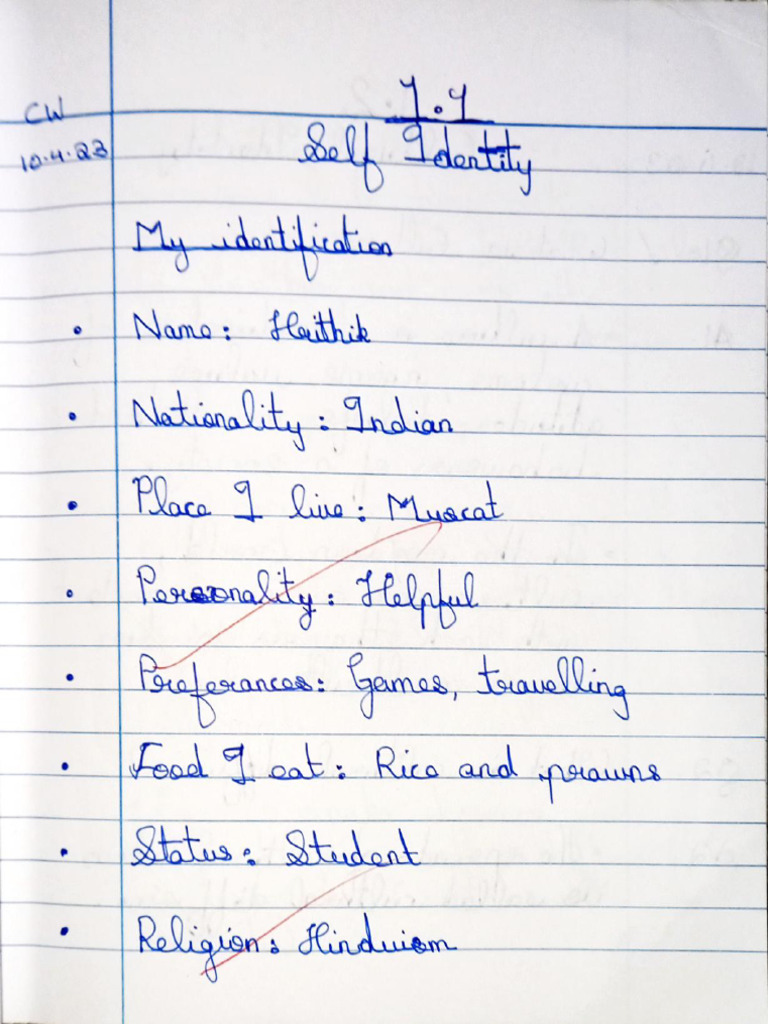 CW
10.4.23
1.1
Self Identity
My identification
• Name: Hrithik
• Nationality: Indian
• Place I live: Muscat
• Personality: Helpful
• Preferances: Games, travelling
• Food I eat: Rice and prawns
• Status: Student
• Religion: Hinduism